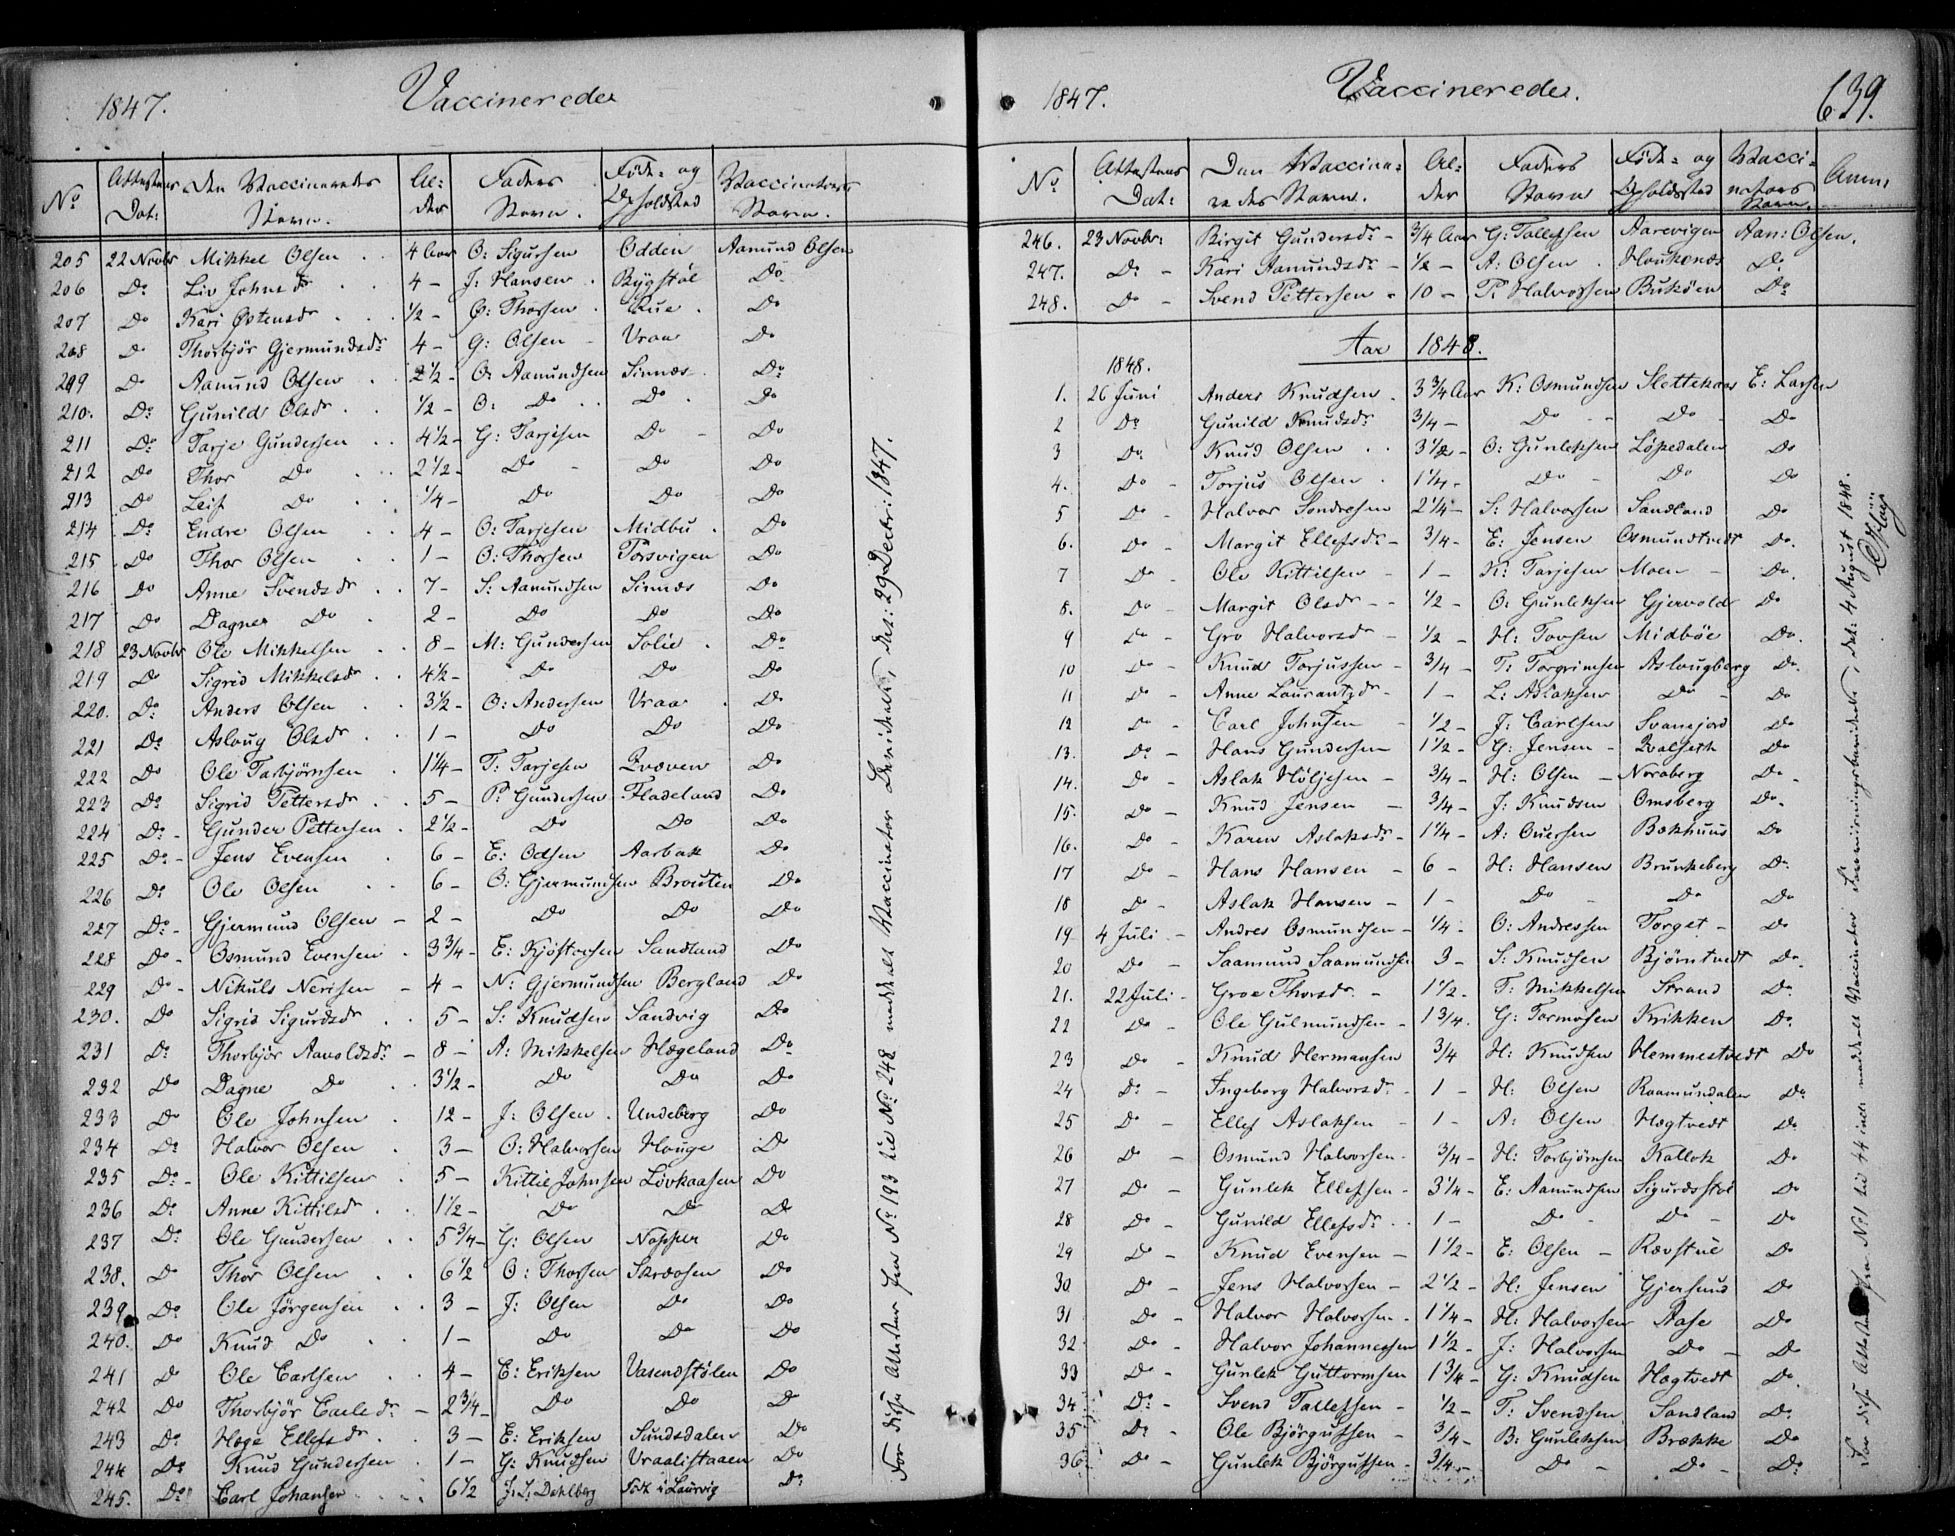 1847. Vaccinerede
No Attestens Dat: Den Vaccineredes Navn. Al: der Faders Navn. Føde- og Opholdsted Vaccinateurs Navn.
205 22 Novbr Mikkel Olsen 4 Aar O: Sigursen Odden Aamund Olsen
206 Do Liv Johnsdr 4 - J: Hansen Bygstøl Do
207 Do Kari Østensdr 1/2 - Ø: Thorsen Rue Do
208 Do Thorbjør Gjermundsdr 4 - G: Olsen Vraa Do
209 Do Aamund Olsen 2 1/2 - O: Aamundsen Sinnes Do
210. Do Gunild Olsdr 1/2 - O: Do Do Do
211 Do Tarje Gundersen 4 1/2 - G: Tarjesen Do Do
212 Do Thor Do 2 1/2 - Do Do Do
213 Do Leif Do 1/4 - Do Do Do
214 Do Endre Olsen 4 - O: Tarjesen Midbu Do
215 Do Thor Olsen 1 - O: Thorsen Torsvigen Do
216 Do Anne Svendsdr 7 - S: Aamundsen Sinnes Do
217 Do Dagne Do 2 - Do Do Do
218 23 Novbr Ole Mikkelsen 8 - M: Gundersen Solie Do
219 Do Sigrid Mikkelsdr 4 1/2 - Do Do Do
220. Do Anders Olsen 3 1/2 - O: Andersen Vraa Do
221 Do Aslaug Olsdr 1 - Do Do Do
222 Do Ole Tarbjørnsen 1 1/4 - T: Tarjesen Qvæven Do
223 Do Sigrid Pettersdr 5 - P: Gundersen Fladeland Do
224 Do Gunder Pettersen 2 1/2 - Do Do Do
225 Do Jens Evensen 6 - E: Olsen Aarbak Do
226 Do Ole Olsen 6 - O: Gjermundsen Brouten Do
227 Do Gjermund Olsen - 2 - Do Do Do
228 Do Osmund Evensen 3 3/4 - E: Sandland Do
229 Do Nikuls Nerisen - 4 - N: Gjermundsen Bergland Do
230. Do Sigrid Sigurdsdr 5 - S: Knudsen Sandvig Do
231 Do Thorbjør Aavoldsdr - 8 - A: Mikkelsen Hægeland Do
232 Do Dagne Do 3 1/2 - Do Do Do
233 Do Ole Johnsen 12 - J: Olsen Undeberg Do
234 Do Halvor Olsen 3 - O: Halvorsen Houge Do
235 Do Ole Kittilsen 5 - Kittil Johnsen Lövkaasen Do
236 Do Anne Kittilsdr 1 1/2 - Do Do Do
237 Do Ole Gundersen 5 3/4 - G: Olsen Napper Do
238. Do Thor Olsen 6 1/2 O: Thorsen Skræosen Do
239 Do Ole Jörgensen 3 - J: Olsen Do Do
240. Do Knud Do 1 - Do Do Do
241 Do Ole Carlsen 4 - C: Eriksen Vasendstølen Do
242 Do Thorbjör Carlsdr - 2 3/4 - Do Do Do
243 Do Hæge Ellefsdr 3 - E: Eriksen Sundsdalen Do
244 Do Knud Gundersen 1 - G: Knudsen Vraalistaaen Do
245. Do Carl Johansen 6 1/2 J: L: Dahlberg Födt i Laurvig Do
For disse Attester fra No 193 til No 248 meddelt Vaccinator Beviset, det: 29 Decbr: 1847.
1847. Vaccinerede. 639.
No Attestens Dat: Den Vaccineredes Navn. Al: der Faders Navn Føde- og Opholdssted Vaccinators Navn. Anm:
246. 23 Novbr: Birgit Gundersdr - 3/4 Aar G: Tallefsen Aarevigen Aam: Olsen.
247. Do - Kari Aamundsdr - 1/2 - A: Olsen Haukenæs Do
248. Do - Svend Pettersen - 10 - P: Halvorsen Buköen Do
Aar 1848.
1848.
1. 26 Juni Anders Knudsen 3 3/4 Aar K: Osmundsen Slettekaas E: Larsen
2 Do Gunild Knudsdr 3/4 - Do Do Do
3 Do Knud Olsen 3 1/2 - O: Gunleksen Löpedalen Do
4. Do - Torjus Olsen 1 1/4 - Do Do Do
5 Do - Halvor Sondresen 2 1/4 - S: Halvorsen Sandland Do
6. Do - Margit Ellefsdr - 3/4 - E: Jensen Osmundtvedt Do
7 Do - Ole Kittilsen - 1 - K: Tarjesen Moen - Do
8. Do - Margit Olsdr - 1/2 - O: Gunleksen Gjervold Do
9 Do - Gro Halvorsdr - 1/2 - H: Tovsen Midböe Do
10 Do - Knud Torjussen - 3/4 - T: Torgrimsen Aslaugberg Do
11 Do - Anne Laurantzdr - 1 - L: Aslaksen Do - Do
12 Do - Carl Johnsen - 1/2 - J: Carlsen Svanejord Do
13. Do - Hans Gundersen 1 1/2 - G: Jensen - Qvalseth Do
14. Do - Aslak Höljesen - 3/4 - H: Olsen - Noraberg Do
15. Do - Knud Jensen - 3/4 - J: Knudsen Omsberg Do
16. Do - Karen Aslaksdr - 1 1/4 - A: Ouersen Bækhuus Do
17 Do - Hans Hansen - 6 - H: Hansen Brunkeberg Do
18 Do - Aslak Hansen - 1 - Do Do Do
19 4 Juli - Andres Osmundsen - 1/4 - O: Andressen Torget - Do
20 Do - Saamund Saamundsen 3 - S: Knudsen Björntvedt Do
21. 22 Juli - Groe Thorsdr - 1 1/2 - T: Mikkelsen Strand Do
22 Do - Ole Gulmundsen - 1 3/4 - G: Tormosen Krikken Do
23 Do - Knud Hermansen 3/4 H: Knudsen Hemmestvedt Do
24 Do - Ingeborg Halvorsdr - 1 - H: Olsen Raamundalen Do
25 Do - Ellef Aslaksen - 1 - A: Olsen Hægtvedt Do
26 Do - Osmund Halvorsen - 3/4 - H: Torbjörnsen Kallok Do
27 Do - Gunlek Ellefsen - 3 1/4 - E: Aamundsen Sigurdsstöl Do
28 Do - Gunild Ellefsdr 1 - Do - Do - Do
29 Do - Knud Evensen - 1 1/2 - E: Olsen - Rævstul Do
30 Do - Jens Halvorsen - 2 1/2 - H: Jensen Gjersund Do
31 Do - Halvor Halvorsen - 1 1/4 - H: Halvorsen Aase Do
32 Do - Halvor Johannessen 1 1/2 - J: Halvorsen Do - Do
33 Do - Gunlek Guttormsen 1 3/4 - G: Knudsen Hægtvedt Do
34 Do - Svend Tallefsen - 1/2 - T: Svendsen Sandland Do
35 Do - Ole Björgufsen - 3/4 - B: Gunleksen Brække Do
36 Do - Gunlek Björgufsen - 3/4 - Do - Do - Do
For disse Attester fra No 1 til 44 incl. meddelt Vaccinator det: 4 August 1848.